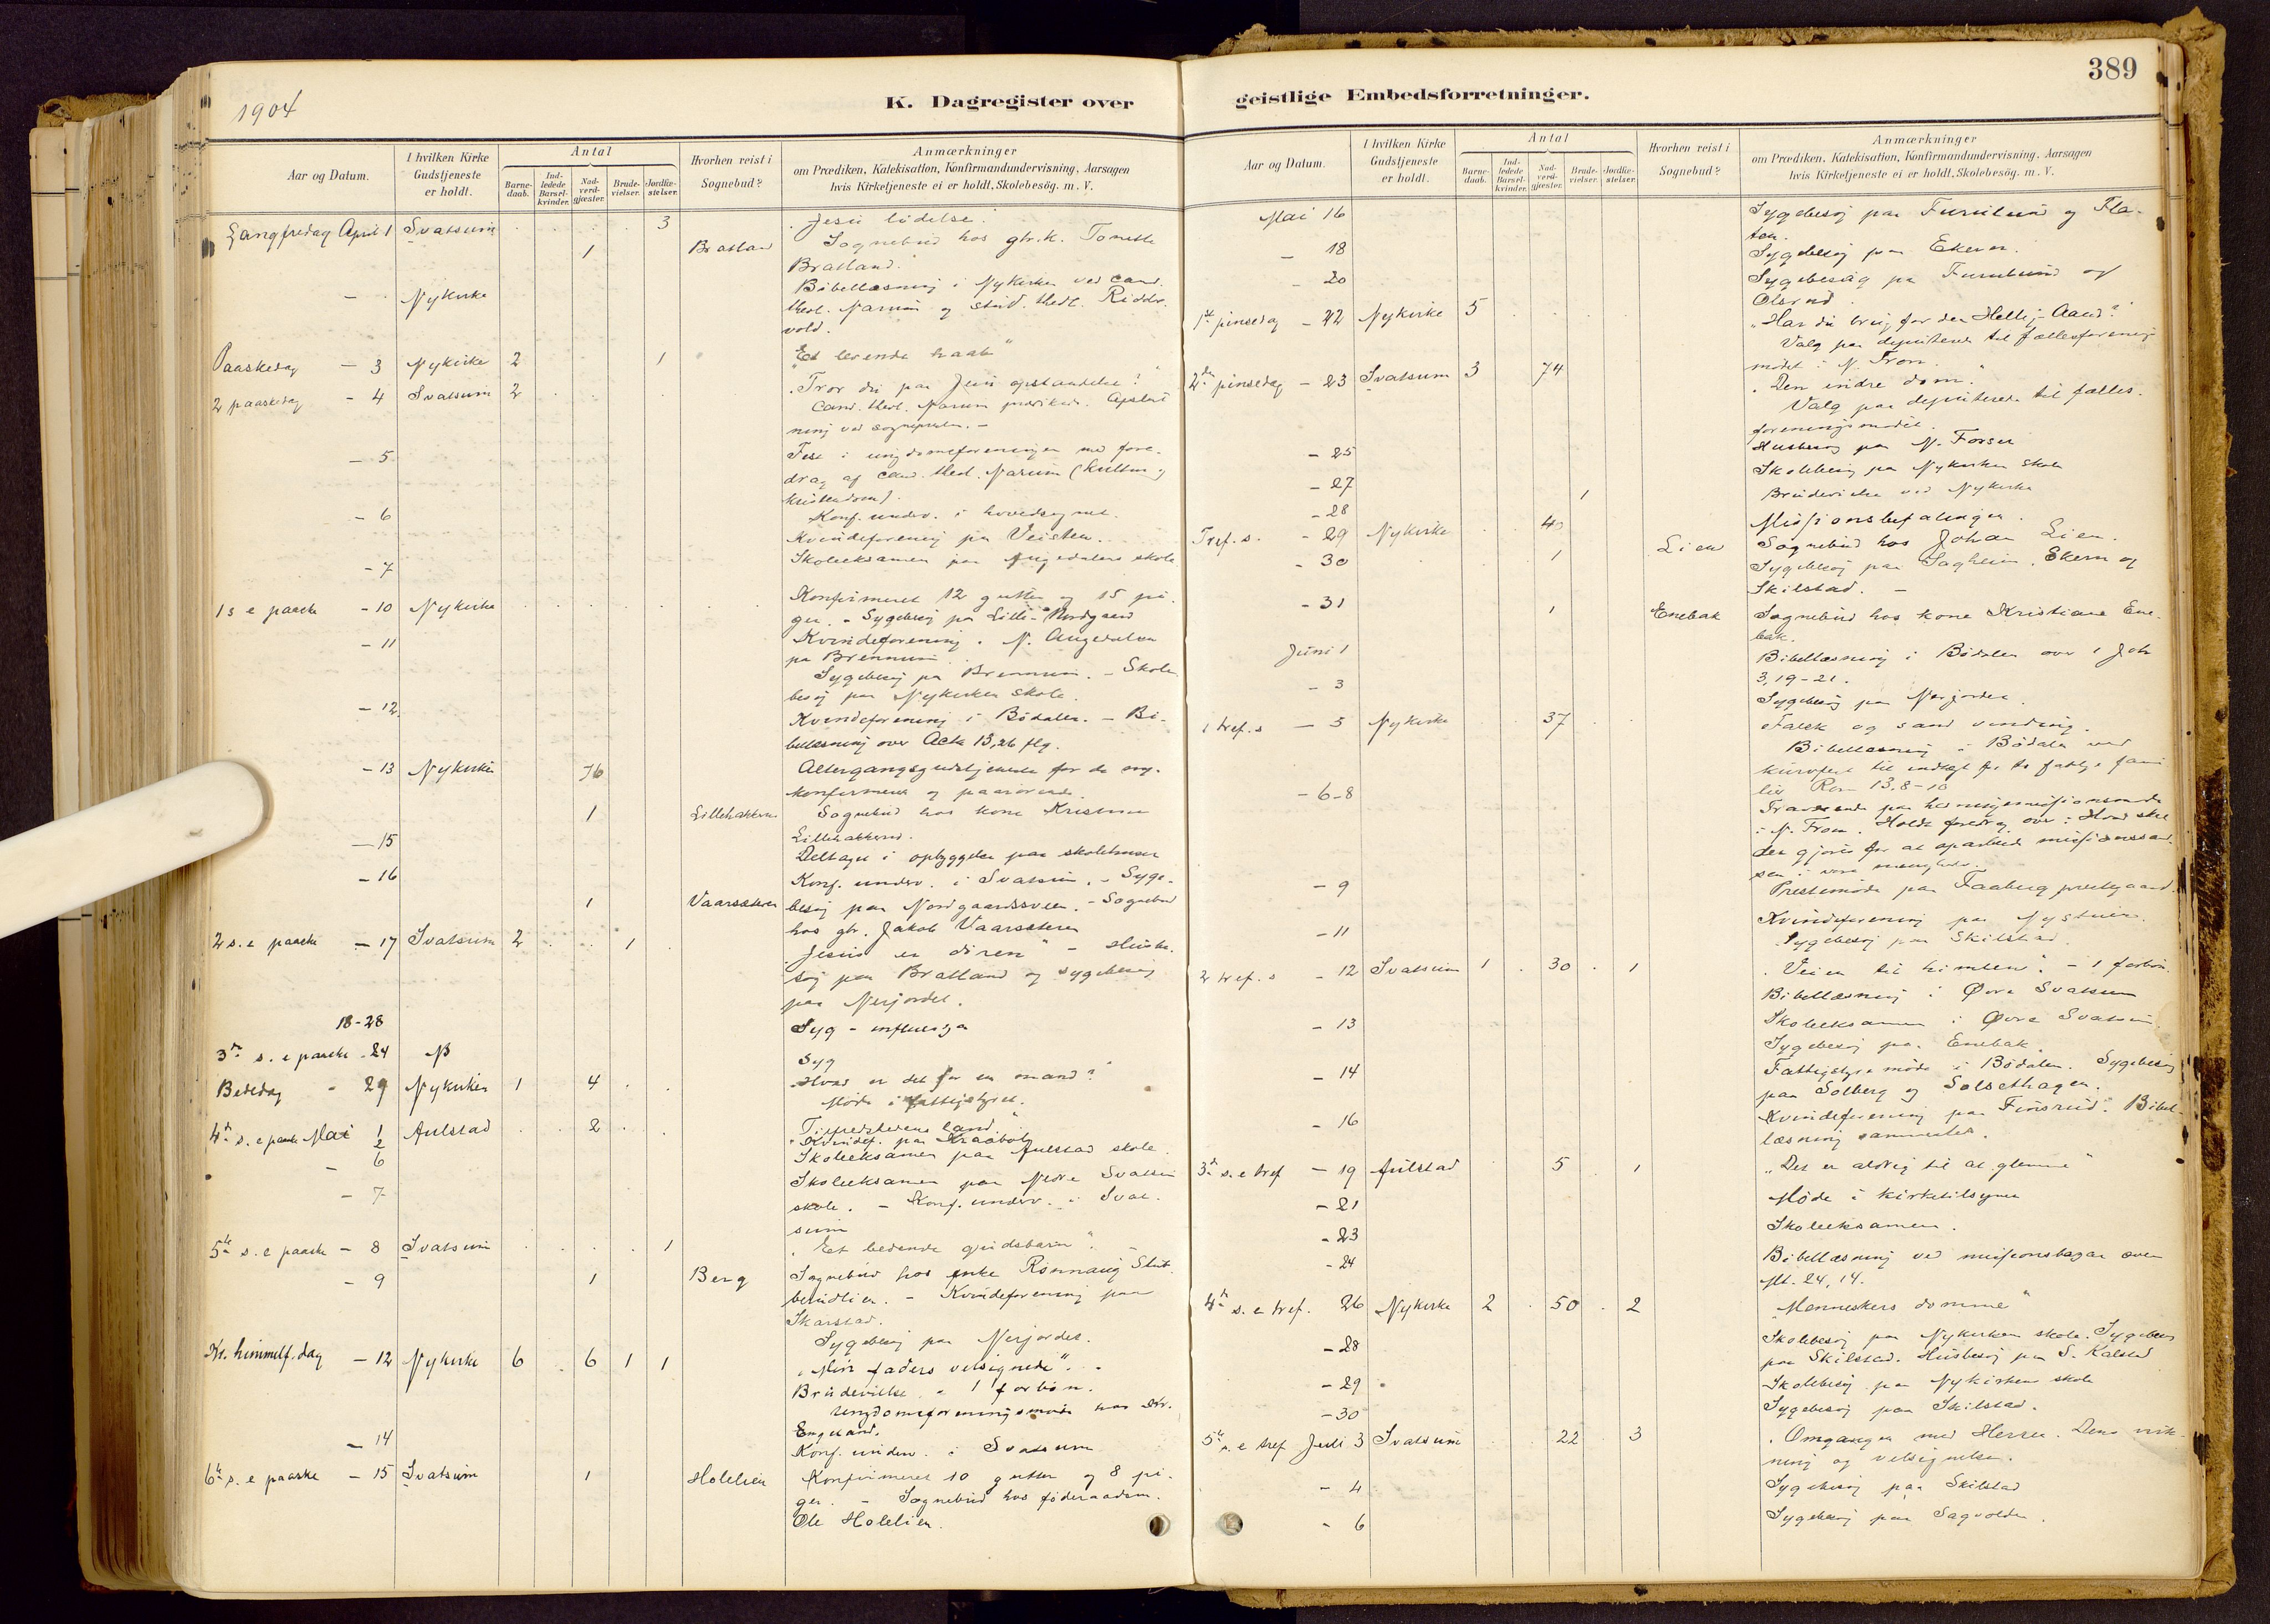 1904
K. Dagregister over
Aar og Datum.
I hvilken Kirke Gudstjeneste er holdt.
Antal
Barne-daab.
Ind-ledede Barsel-kvinder.
Nad-verd-gjæster.
Brude-vielser.
Jordfæ-stelser.
Hvorhen reist i Sognebud?
Anmærkninger
om Prædiken, Katekisation, Konfirmandundervisning, Aarsagen
hvis Kirketjeneste ei er holdt, Skolebesög. m. V.
Langfredag April 1 Svatsum 3 Jesu lidelse.
1 Bratland Sognebud hos gbr.k. Tonette
Bratland.
- Nykirke Bibellæsning i Nykirken ved cand.
theol. Narum og stud. theol. Ridder-
vold.
Paaskedag - 3 Nykirke 2 1 "Et levende haab"
2 paaskedag - 4 Svatsum 2 "Tror du paa Jesu opstandelse?"
Cand. theol. Narum prædiker. Apslut-
ning ved sognepresten. -
- 5 Fest i ungdomsforeningen med fore-
drag af cand. theol. Narum (Kultur og
kristendom).
- 6 Konf. underv. i hovedsognet.
Kvindeforening paa Veisten.
- 7 Skoleeksamen paa Augedalens skole
1 s e paaske - 10 Nykirke Konfirmeret 12 gutter og 15 pi-
ger. - Sygebesøg paa Lille-Nordgaard
- 11 Kvindeforening i N. Augedalen
paa Brennum
Sygebesøg paa Brennum. - Skole-
besøg paa Nykirken skole.
- 12 Kvindeforening i Bødalen. - Bi-
bellæsning over Acta 13,26 flg.
- 13 Nykirken 76 Altergangsgudstjeneste for de ny-
konfirmerte og paarørende.
1 Lillehakkerud Sognebud hos kone Kristine
Lillehakkerud.
- 15 Deltaget i opbyggelse paa skolehuset
- 16 Konf. underv. i Svatsum. - Syge-
1 Vaarsæteren besøg paa Nordgaardssveen. - Sognebud
hos gbr. Jakob Vaarsæteren
2 s. e paaske - 17 Svatsum 2 1 "Jesus er døren" - Husbe-
søg paa Bratland og sygebesøg
paa Nerjordet.
18-28 Syg - influensa
3die s. e paaske - 24 Syg
Bededag - 29 Nykirken 1 4 "Hvad er det for en mand?"
Møde i fattigstyret.
4de s. e paaske Mai 1 Aulstad 2 Tilfredshedens land.
2 Kvindef. paa Kraabøl
- 6 Skoleeksamen paa Aulstad skole.
- 7 Skoleeksamen paa Nedre Svatsum
skole. - Konf. underv. i Svat-
sum
5te s. e paaske - 8 Svatsum 1 "Et bedende gudsbarn".
- 9 1 Berg Sognebud hos enke Rønnaug Stub-
berudlien. - Kvindeforening paa
Skarstad.
Sygebesøg paa Nerjordet.
Kr. himmelf. dag - 12 Nykirke 6 6 1 1 "Min faders velsignede". -
Brudevielse - 1 forbøn.
Ungdomsforeningsmøde hos Kr.
Engeland.
- 14 Konf. underv. i Svatsum
6te s. e paaske - 15 Svatsum 1 Holelien Konfirmeret 10 gutter og 8 pi-
ger. - Sognebud hos føderaadsm.
Ole Holelien.
389
geistlige Embedsforretninger.
Aar og Datum.
I hvilken Kirke Gudstjeneste er holdt.
Antal
Barne-daab.
Ind-ledede Barsel-kvinder.
Nad-verd-gjæster.
Brude-vielser.
Jordfæ-stelser.
Hvorhen reist i Sognebud?
Anmærkninger
om Prædiken, Katekisation, Konfirmandundervisning, Aarsagen
hvis Kirketjeneste ei er holdt, Skolebesög. m. V.
Mai 16 Sygebesøg paa Furulund og Fla-
ten.
- 18 Sygebesøg paa Ekern.
- 20 Sygebesøg paa Furulund og
Olsrud.
1ste pinsedag - 22 Nykirke 5 "Har du brug for den Hellig-Aand?"
Valg paa deputerede til fællesforenings-
mødet i N. Fron.
2den pinsedag - 23 Svatsum 3 74 "Den indre dom."
Valg paa deputerede til fælles-
foreningsmødet.
- 25 Husbesøg paa N. Forset
- 27 Skolebesøg paa Nykirken skole
- 28 1 Brudevielse ved Nykirke
Tref. s. - 29 Nykirke 40 Missionsbefalingen.
- 30 1 Lien Sognebud hos Johan Lien.
Sygebesøg paa Sagheim, Ekern og
Skilstad. -
- 31 1 Enebak Sognebud hos kone Kristiane Ene-
bak.
Juni 1 Bibellæsning i Bødalen over 1 Joh
3,19-21.
- 3 Sygebesøg paa Nerjordet
1 tref. s - 5 Nykirke 37 Falsk og sand vending.
Bibellæsning i Bødalen ved
kurvfest til indtægt for to fattige fami-
lier Rom 13,8-10
- 6-8 Fraværende paa
i N. Fron. Holdt foredrag over: Hvad skal
der gjøres for at oparbeide missionssan-
sen i vore menigheder.
- 9 Prestemøde paa Faaberg prestegaard.
Kvindeforening paa Nystuen.
- 11 Sygebesøg paa Skilstad.
2 tref. s - 12 Svatsum 1 30 1 "Veien til himlen". - 1 forbøn.
Bibellæsning i Øvre Svatsum
- 13 Skoleeksamen i Øvre Svatsum.
Sygebesøg paa Enebak
- 14 Fattigstyremøde i Bødalen. Sygebesøg
paa Solberg og Solsethagen.
- 16 Kvindeforening paa Finsrud. Bibel-
læsning sammesteds.
3die s. e tref - 19 Aulstad 5 1 "Det er aldrig til at glemme"
- 21 Møde i kirketilsynet
- 23 Skoleeksamen.
- 24 Bibellæsning ved missionsbazar over
Mt. 24,14.
4de s. e tref. 26 Nykirke 2 50 2 "Menneskers domme"
- 28 Skolebesøg paa Nykirken skole. Sygebesøg
paa Skilstad. Husbesøg paa S. Kalstad
- 29 Skolebesøg paa Nykirken skole
- 30 Sygebesøg paa Skilstad.
5te s. e tref Juli 3 Svatsum 22 3 "Omgangen med Herren. Dens virk-
ning og velsignelse.
- 4 Sygebesøg paa Skilstad
- 6 Sygebesøg paa Sagvolden.